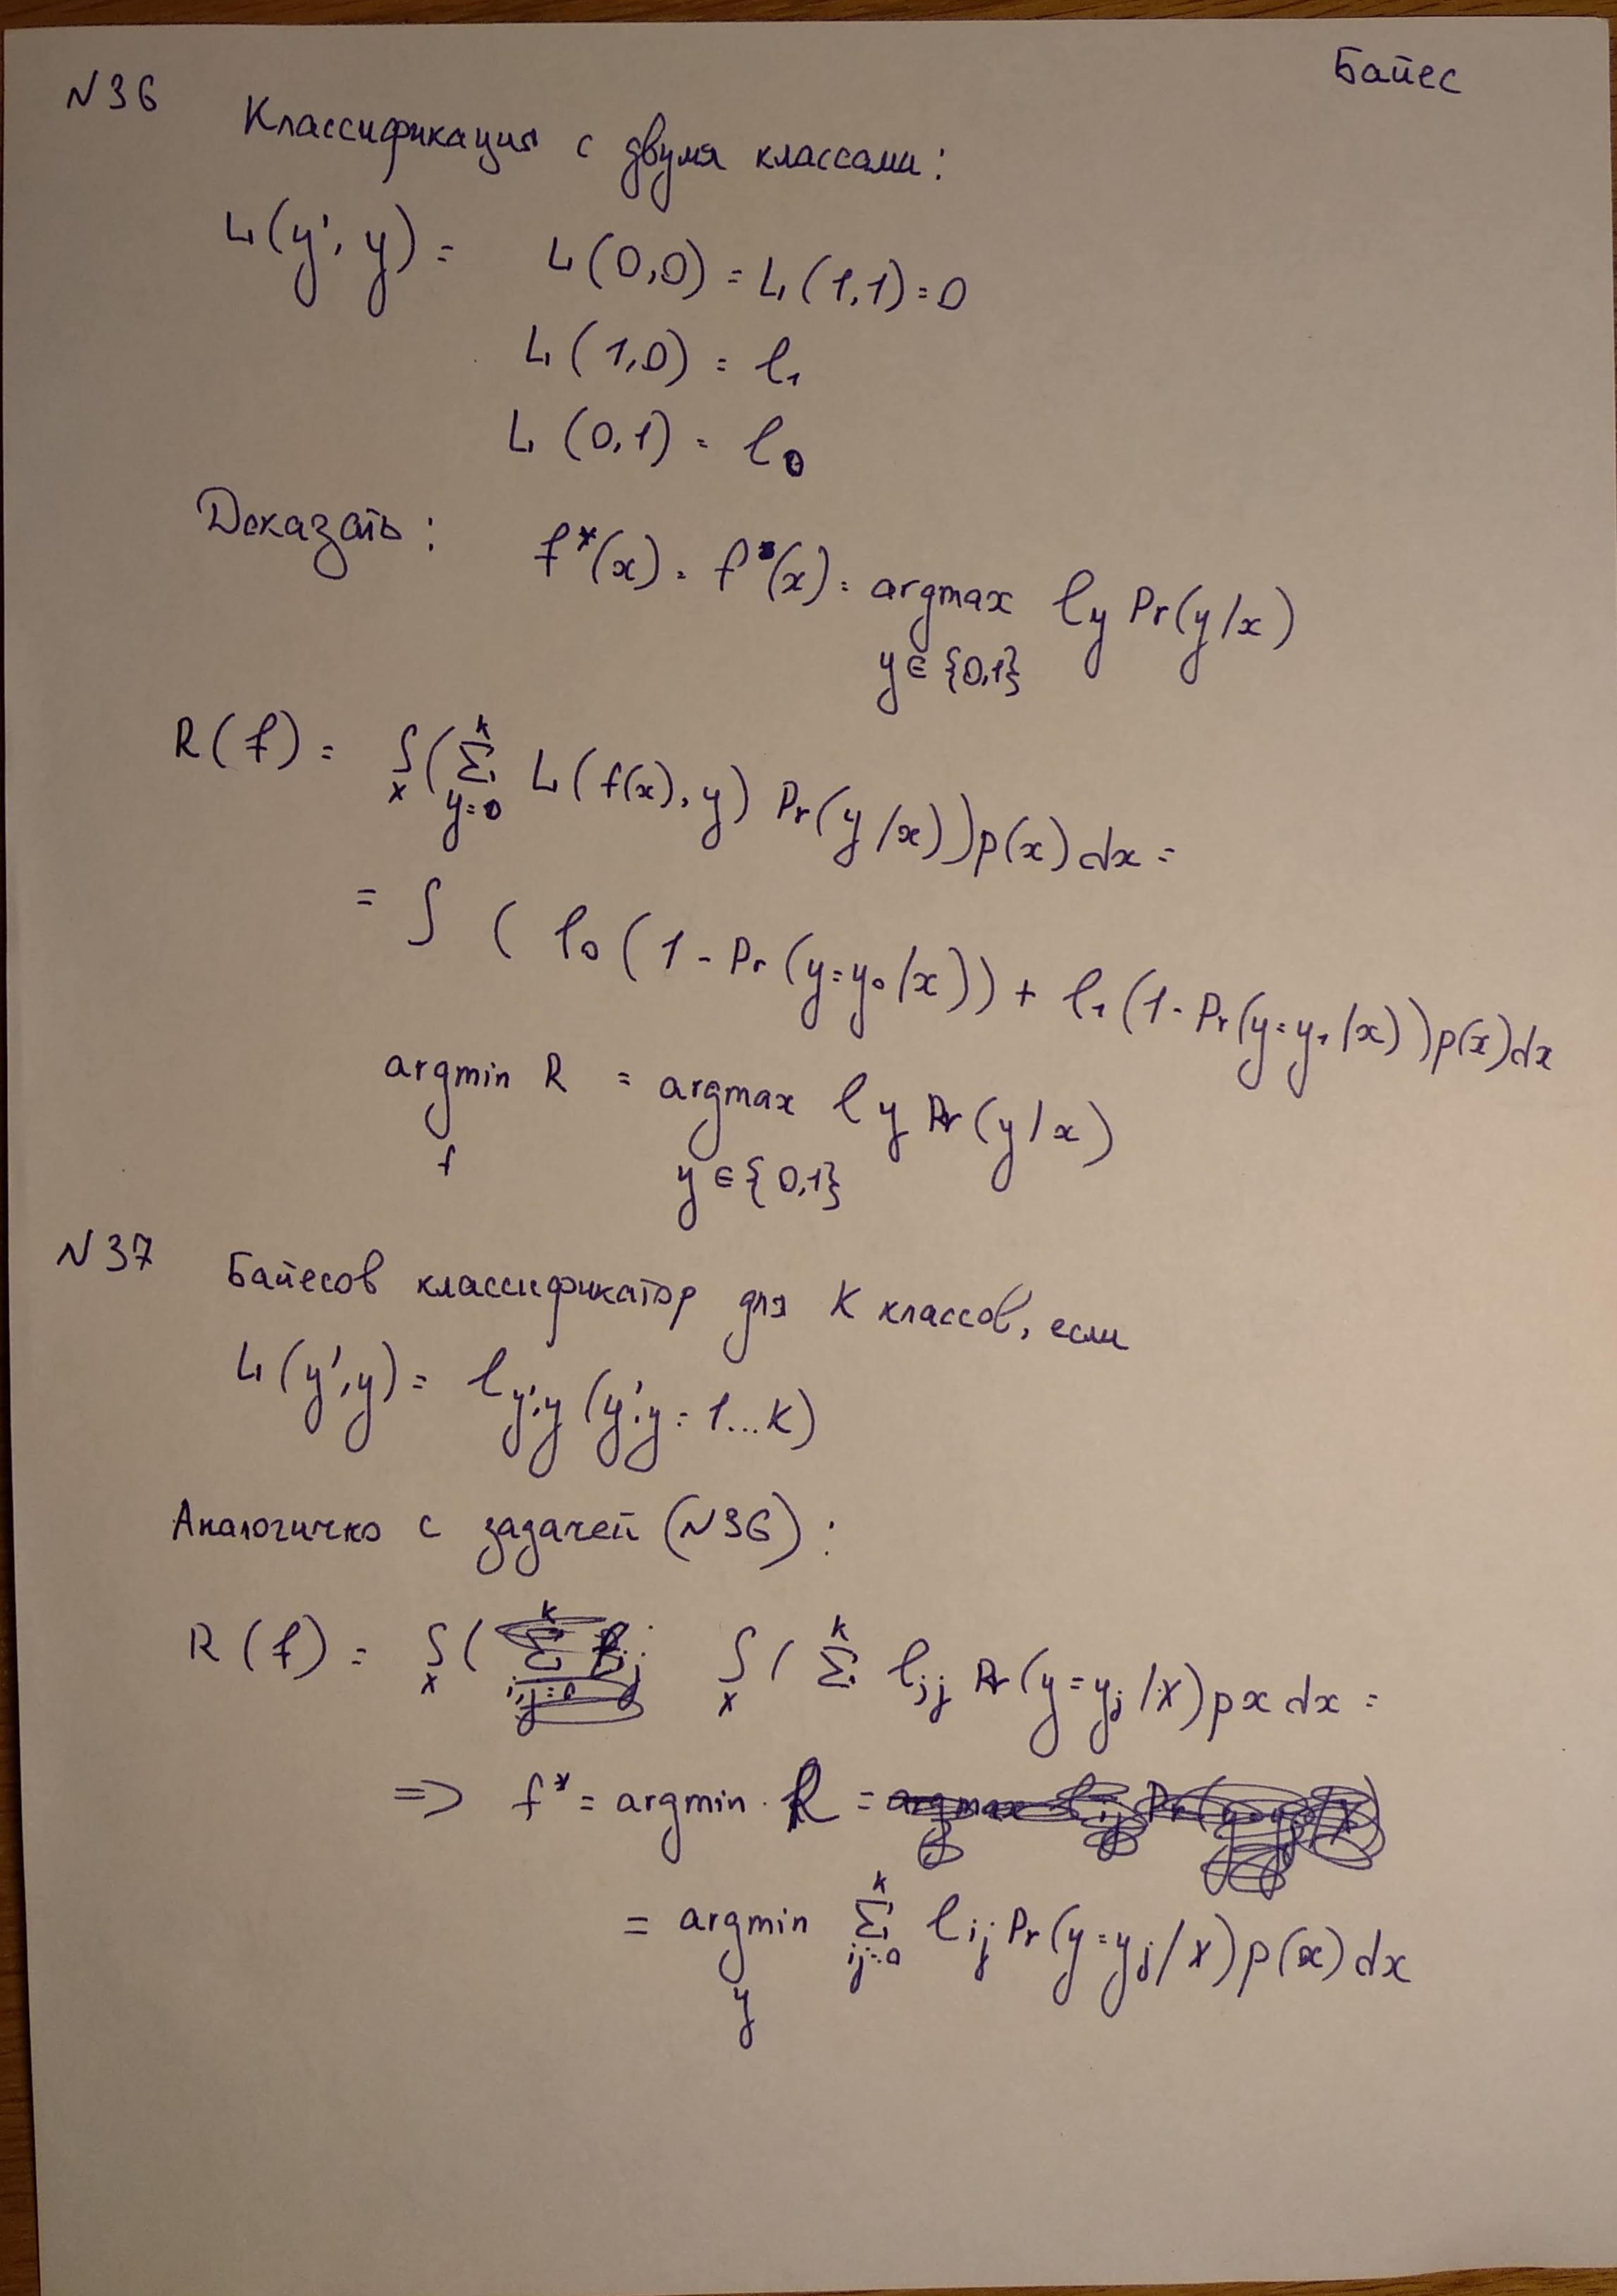 Байес
N36
Классификация с двумя классами:
L(y', y) = L(0,0) = L(1,1) = 0
L(1,0) = l₁
L(0,1) = l₀
Доказать: f*(x) = f*(x) = argmax l_y Pr(y/x)
y ∈ {0,1}
R(f) = ∫_X (Σ_{y=0}^{K} L(f(x), y) Pr(y/x)) p(x) dx =
= ∫ ( l₀ (1 - Pr(y=y₀/x)) + l₁ (1 - Pr(y=y₁/x)) p(x) dx
argmin R = argmax l_y Pr(y/x)
f y ∈ {0,1}
N37
Байесов классификатор для K классов, если
L(y', y) = l_{y',y} (y', y = 1...K)
Аналогично с задачей (N36):
R(f) = ∫_X ( ∫_X ( Σ^K l_{ij} Pr(y=y_j/X) p x dx =
=> f* = argmin R =
= argmin Σ_{ij=0}^{K} l_{ij} Pr(y=y_j/X) p(x) dx
y